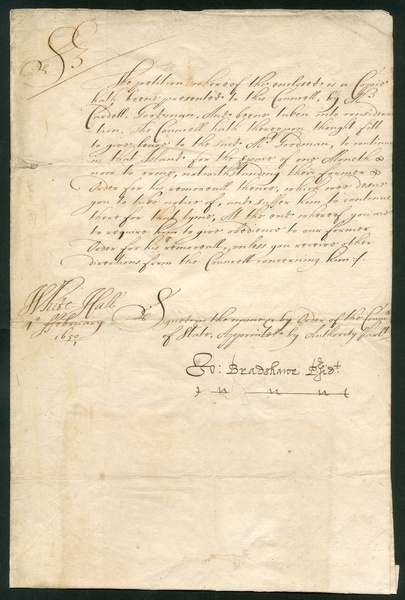 Sr
The petition whereof the enclosed is a Copie
hath beene presented to this Councell, by Mr
Cardell Goodman, And beene taken into considera
tion, The Councell hath thereupon thought fitt
to give leave to the said Mr Goodman, to continue
in that Island for the space of one Moneth
now to come, notwithstanding their former
Order for his removeall thence, which wee desire
you to take notice of, and suffer him to continue
there for that tyme, At the end whereof you are
to require him to give obedience to our former
Order for his removeall, unless you receive other
directions from the Councell concerning him:/
White Hall
February
1650
Signed in the name & by Order of the Councell
of State, Appointed by Authority Parlt
Jo: Bradshawe Presidt